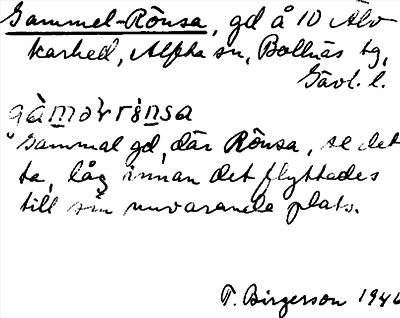 Gammel-Rönsa, gd å 10 Älv
karhed, Alfta sn, Bollnäs tg,
Gävl. l.
gàmωlrö̀nsa
"Gammal gd, där Rönsa, se det
ta, låg innan det flyttades
till sin nuvarande plats.
T. Birgerson 1946